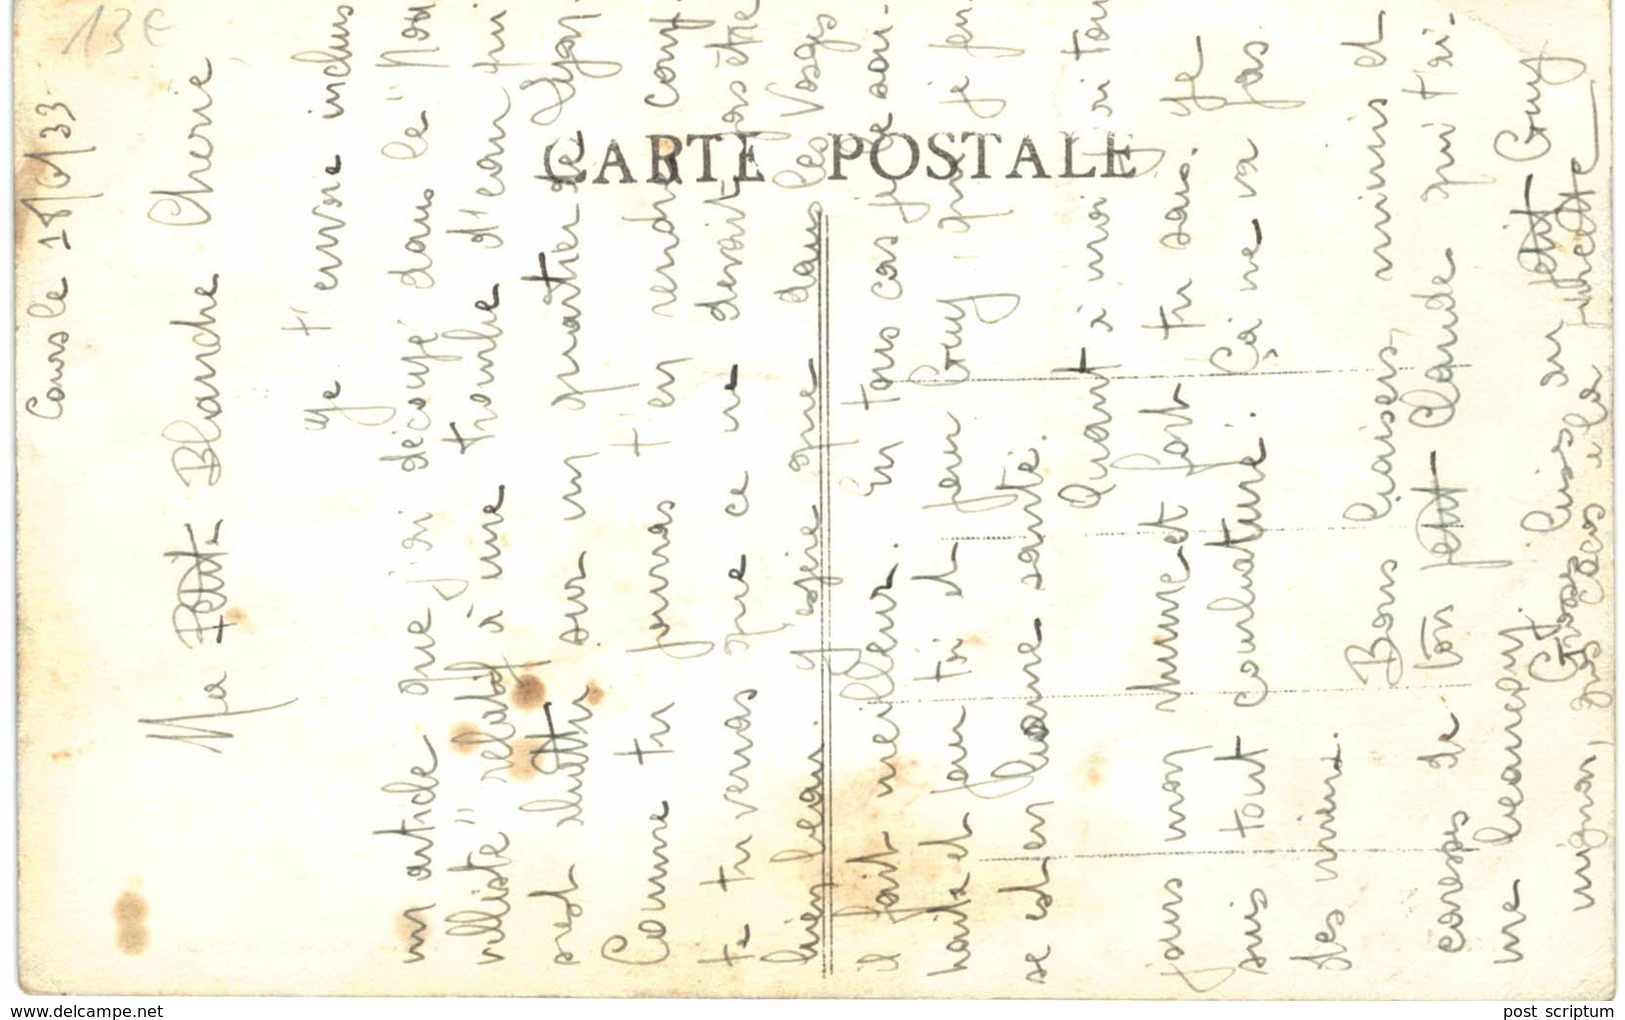 13€
CARTE POSTALE
Cours le 18/6/33
Ma Petite Blanche Cherie,
Je t'envoie inclus
un article que j'ai découpé dans le "Nou
velliste" relatif à une trombe d'eau qui
s'est abattu sur un quartier de Lyon.
Comme tu pourras t'en rendre comp-
te tu verras que ce ne devait pas être
bien beau. J'espère que dans les Vosges
il fait meilleur. En tous cas je le sou-
haite pour toi et pour Guy que je pen-
se est en bonne santé.
Quant à moi j'ai tou
jours mon rhume et fort tu sais. Je
suis tout courbaturé. Cà ne va pas
des mieux.
Bons baisers, mimis et
caresses de ton petit Claude qui t'ai-
me beaucoup.
Gros bises au petit Guy
mignon, gros cacos à la juliette
delcampe.net
post scriptum